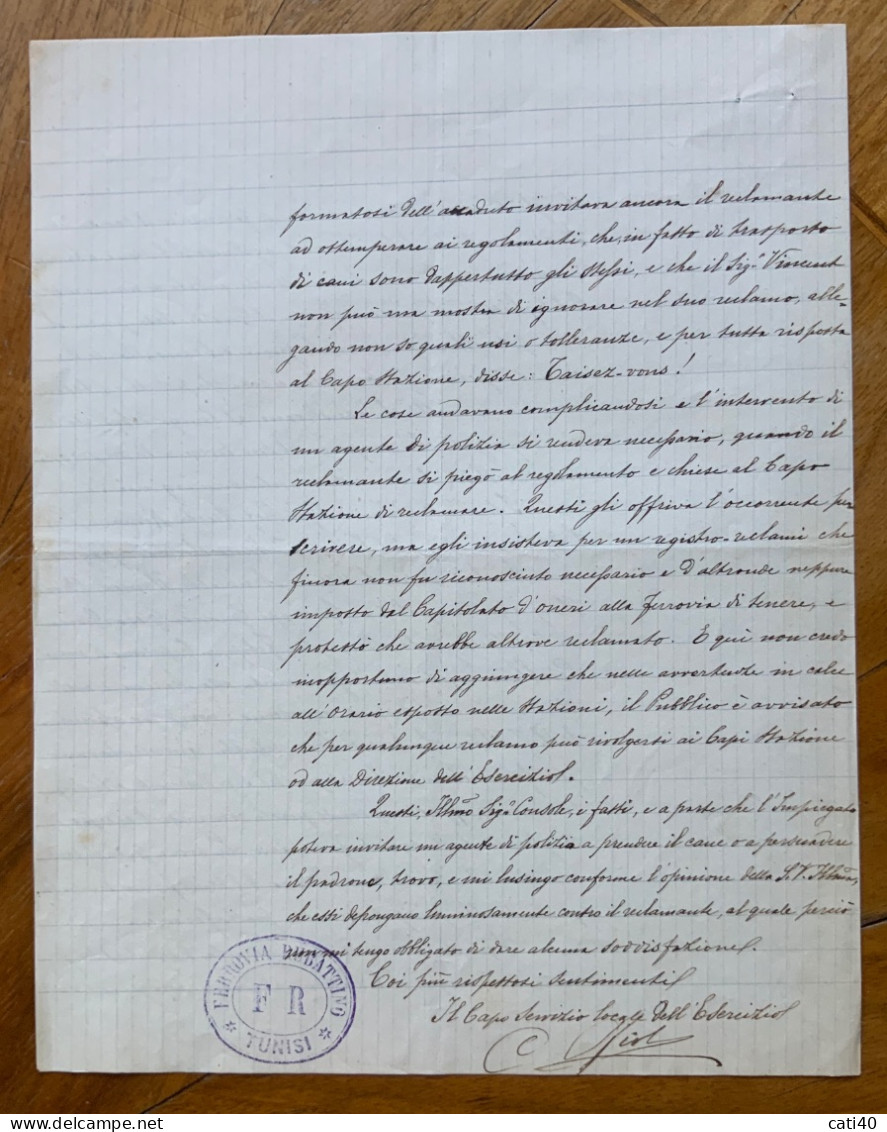 formatosi dell'accaduto invitava ancora il reclamante
ad ottemperare ai regolamenti, che, in fatto di trasporto
di cani sono dappertutto gli stessi, e che il Sigr Vincent
non può ma mostra di ignorare nel suo reclamo, alle-
gando non so quali usi o tolleranze, e per tutta risposta
al Capo Stazione, disse: Taisez-vous!
Le cose andavano complicandosi e l'intervento di
un agente di polizia si rendeva necessario, quando il
reclamante si piegò al regolamento e chiese al Capo
Stazione di reclamare. Questi gli offriva l'occorrente per
scrivere, ma egli insisteva per un registro-reclami che
finora non fu riconosciuto necessario e d'altronde neppure
imposto dal Capitolato d'oneri alla Ferrovia di tenere, e
protestò che avrebbe altrove reclamato. E quì non credo
inopportuno di aggiungere che nelle avvertenze in calce
all'Orario esposto nelle Stazioni, il Pubblico è avvisato
che per qualunque reclamo può rivolgersi ai Capi Stazione
od alla Direzione dell'Esercizio.
Questi, Illmo Sigr Console, i fatti, e a parte che l'Impiegato
poteva invitare un agente di polizia a prendere il cane o a persuadere
il padrone, trovo, e mi lusingo conforme l'opinione della S.V. Illma,
che essi depongano luminosamente contro il reclamante, al quale perciò
non mi tengo obbligato di dare alcuna soddisfazione.
Coi più rispettosi sentimenti
Il Capo Servizio locale dell'Esercizio
FERROVIA RUBATTINO
F R
* TUNISI *
cati40